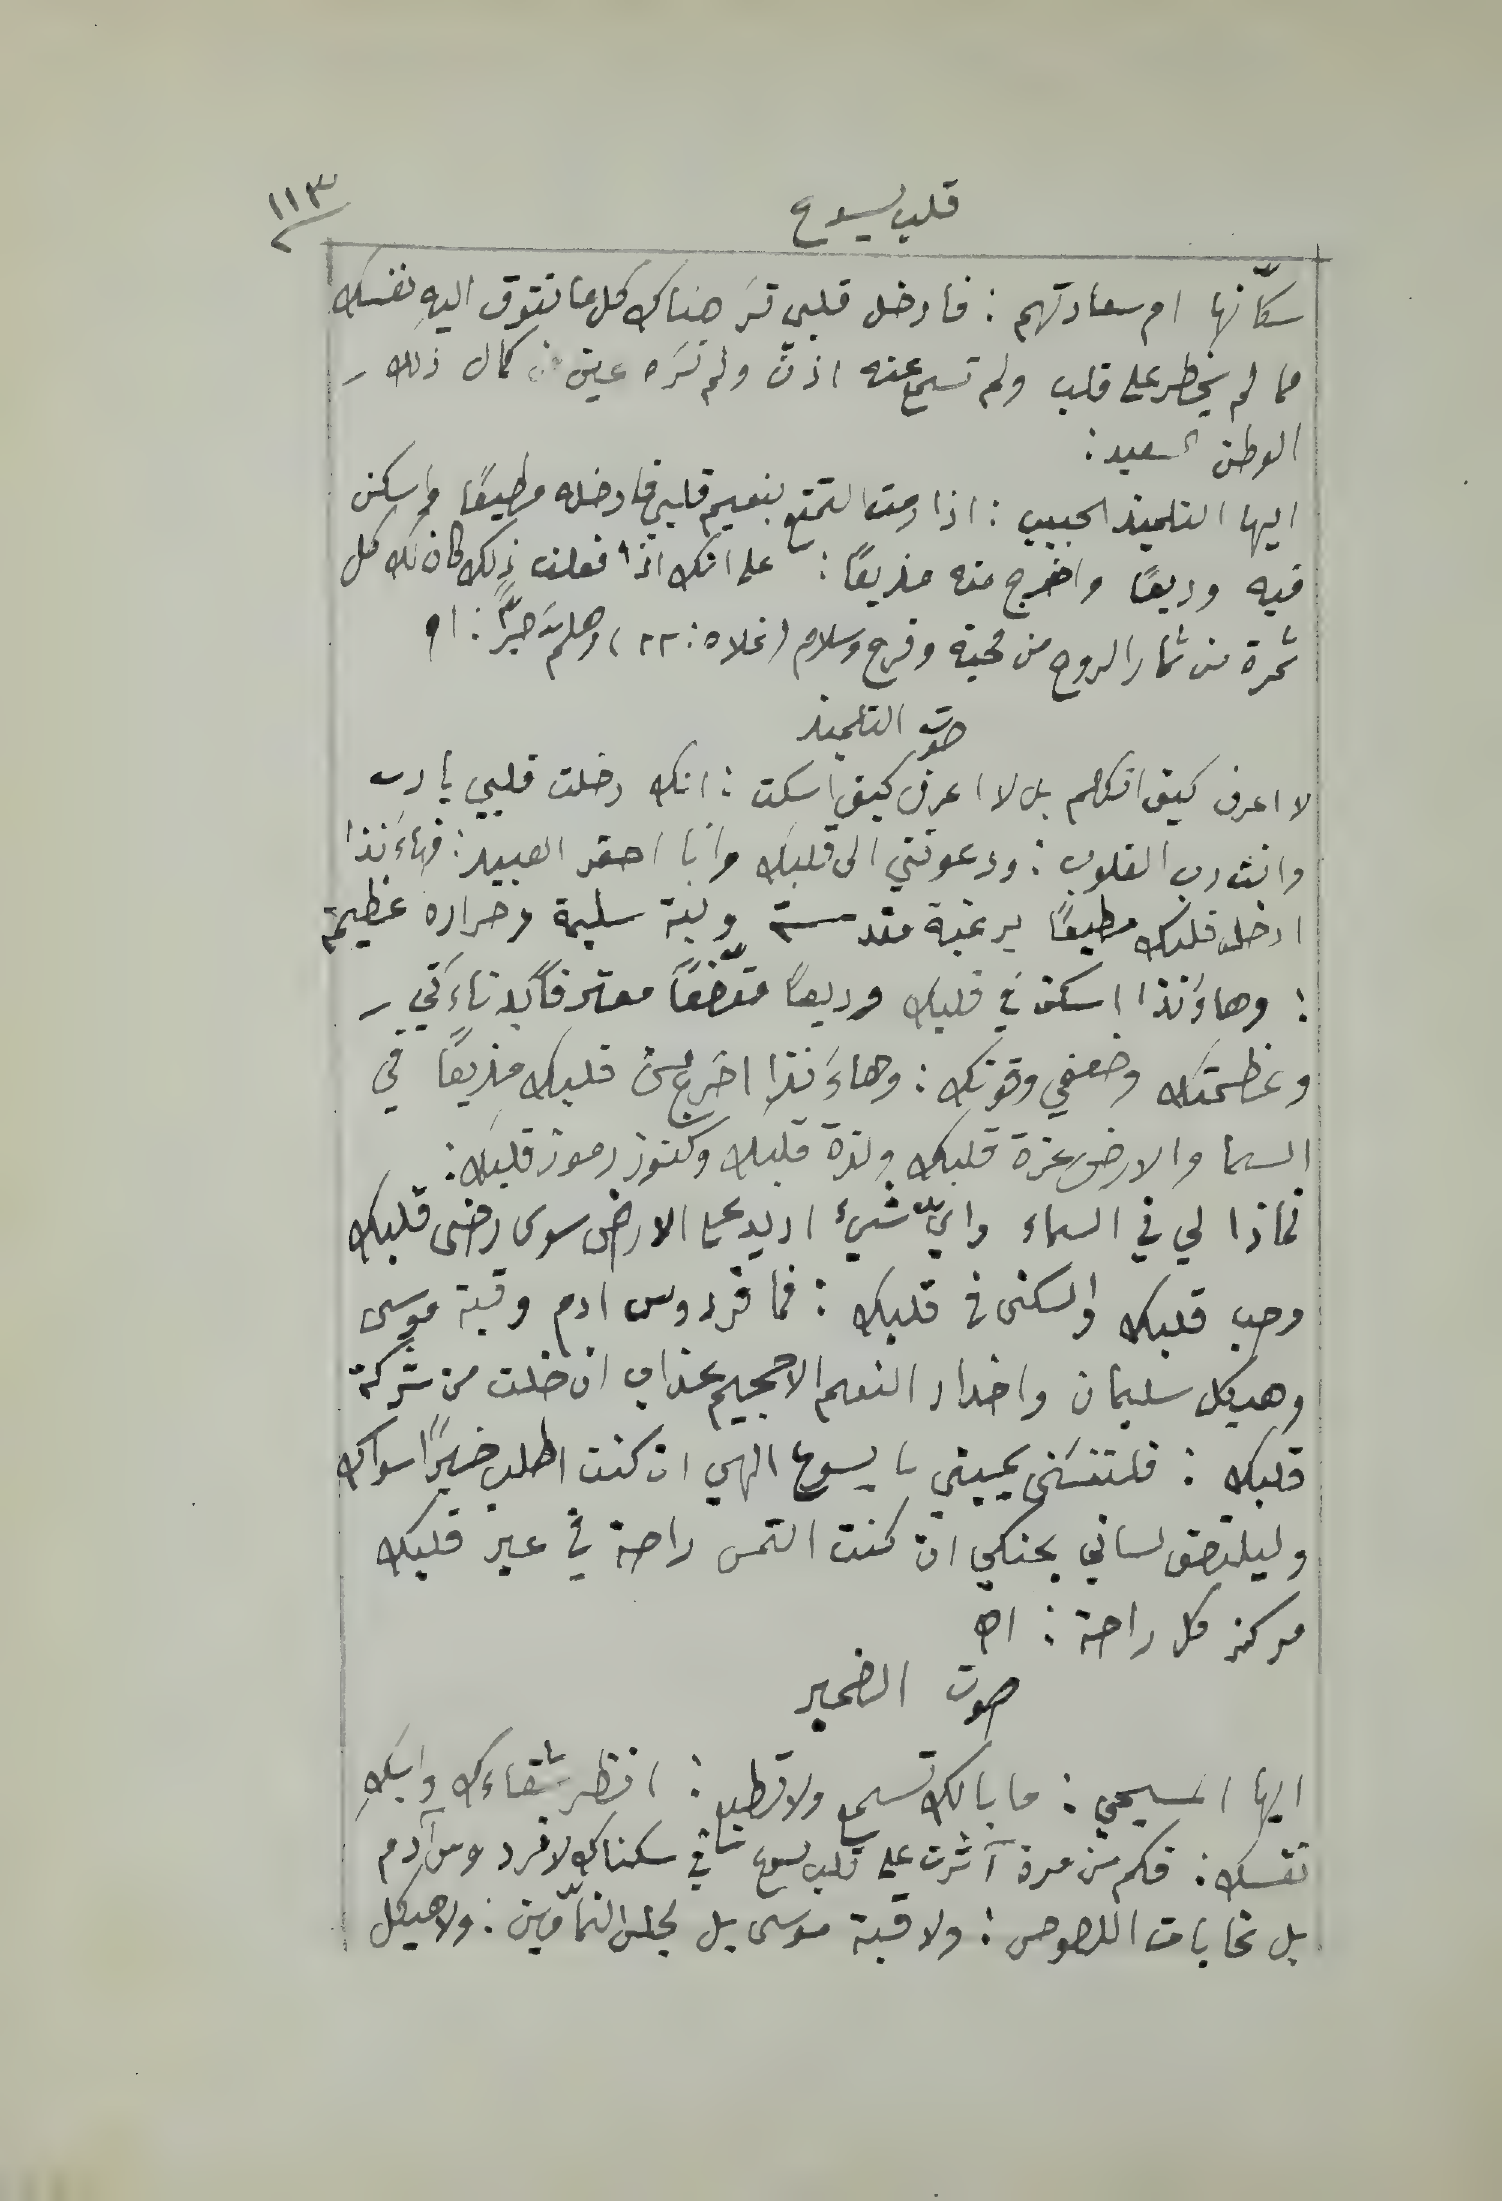 قلب يسوع
١١٣
سكّانها ام سعادتهم : فادخل قلبي ترَ هناك كل ما تتوق اليهِ نفسك
مما لم يخطر على قلب ولم تسمع عنه اذنٌ ولم ترَه عين من كمال ذلك
الوطن السعيد :
ايها التلميذ الحبيب : اذا رمت التمتع بنعيم قلبي فادخله مطيعًا واسكن
فيه وديعًا واخرج منه مذيعًا : على انك اذا فعلت ذلك كان لك كل
ثمرة من ثمار الروح من محبة وفرح وسلام (غلا ٥ : ٢٢) وهلم جرًّا : اه
صوت التلميذ
لا اعرف كيف اتكلم بل لا اعرف كيف اسكت : انك دخلت قلبي يا رب
وانت رب القلوب : ودعوتني الى قلبك وانا احقر العبيد : فهاءَنذا
ادخل قلبك مطيعًا برغبة مقدسة ونية سليمة وحرارة عظيمة
: وهاءَنذا اسكن في قلبك وديعًا متّضعًا معترفًا بدناءَتي
وعظمتك وضعفي وقوتك : وهاءَنذا اخرج من قلبك مذيعًا في
السما والارض عزة قلبك ولذة قلبك وكنوز رموز قلبك :
فماذا لي في السماء وايّ شيء اريد على الارض سوى رضى قلبك
وحب قلبك والسكنى في قلبك : فما فردوس ادم وقبة موسى
وهيكل سليمان واخدار النعيم الا جحيم عذاب ان خلت من شركة
قلبك : فلتنسَني يميني يا يسوع الهي ان كنت اطلب خيرًا سواك
وليلتصق لساني بحنكي ان كنت التمس راحة في غير قلبك
مركز كل راحة : اه
صوت الضمير
ايها المسيحي : ما بالك تسمع ولا تطيع : انظر شقاءك وابكِ
نفسك : فكم من مرة آثرت على قلب يسوع في سكناك لا فردوس آدم
بل غابات اللصوص : ولا قبة موسى بل مجلس النمّامين : ولا هيكل